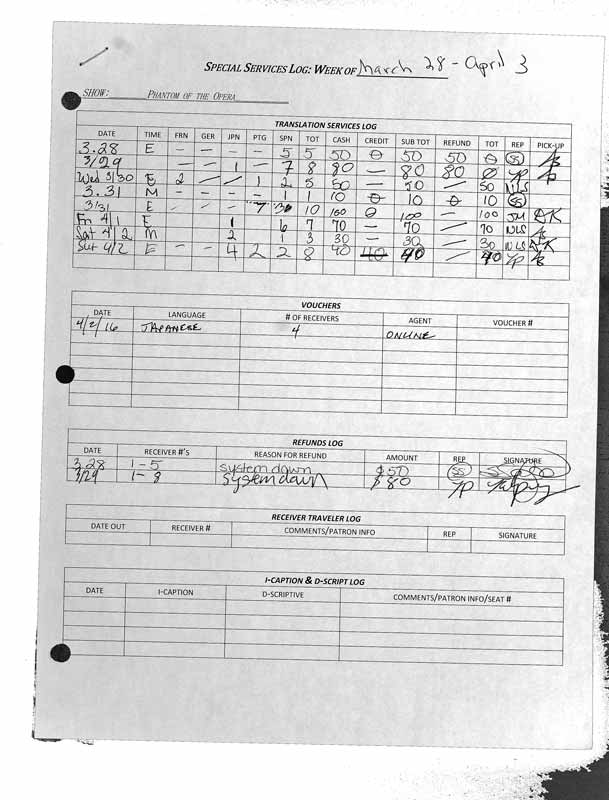 SPECIAL SERVICES LOG: WEEK OF March 28 - April 3
SHOW: PHANTOM OF THE OPERA
TRANSLATION SERVICES LOG
DATE TIME FRN GER JPN PTG SPN TOT CASH CREDIT SUB TOT REFUND TOT REP PICK-UP
3.28 E - - - - 5 5 50 0 50 50 0 SS
3/29 - - 1 - 7 8 80 - 80 80 0 YP
Wed 3/30 E 2 - / 1 2 5 50 - 50 - 50 NLS
3.31 M - - - - 1 1 10 0 10 0 10 SS
3/31 E - - - 7 3 10 100 0 100 - 100 JM DK
Fri 4/1 E 1 6 7 70 - 70 - 70 NLS
Sat 4/2 M 2 1 3 30 - 30 - 30 NLS DK
Sat 4/2 E - - 4 2 2 8 40 40 40 - 40 YP
VOUCHERS
DATE LANGUAGE # OF RECEIVERS AGENT VOUCHER #
4/2/16 JAPANESE 4 ONLINE
REFUNDS LOG
DATE RECEIVER #'S REASON FOR REFUND AMOUNT REP SIGNATURE
3.28 1-5 system down $50 SS
3/29 1-8 system down $80 YP
RECEIVER TRAVELER LOG
DATE OUT RECEIVER # COMMENTS/PATRON INFO REP SIGNATURE
I-CAPTION & D-SCRIPT LOG
DATE I-CAPTION D-SCRIPTIVE COMMENTS/PATRON INFO/SEAT #